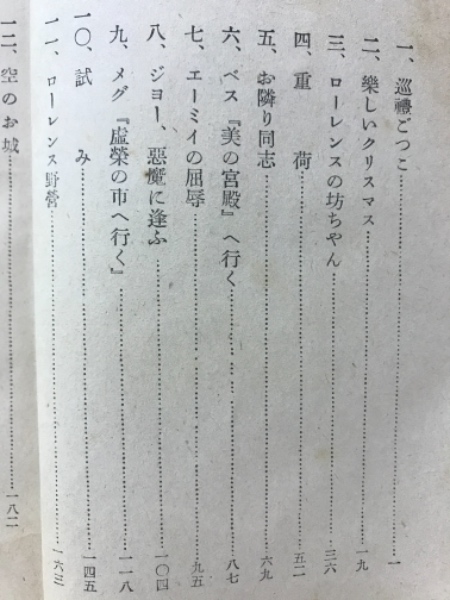 一、巡禮ごつこ……一
二、樂しいクリスマス……一九
三、ローレンスの坊ちやん……三六
四、重荷……五二
五、お隣り同志……六九
六、ベス『美の宮殿』へ行く……八七
七、エーミイの屈辱……九五
八、ジヨー、惡魔に逢ふ……一〇四
九、メグ『虛榮の市へ行く』……一一八
一〇、試み……一四五
一一、ローレンス野營……一六三
一二、空のお城……一八二